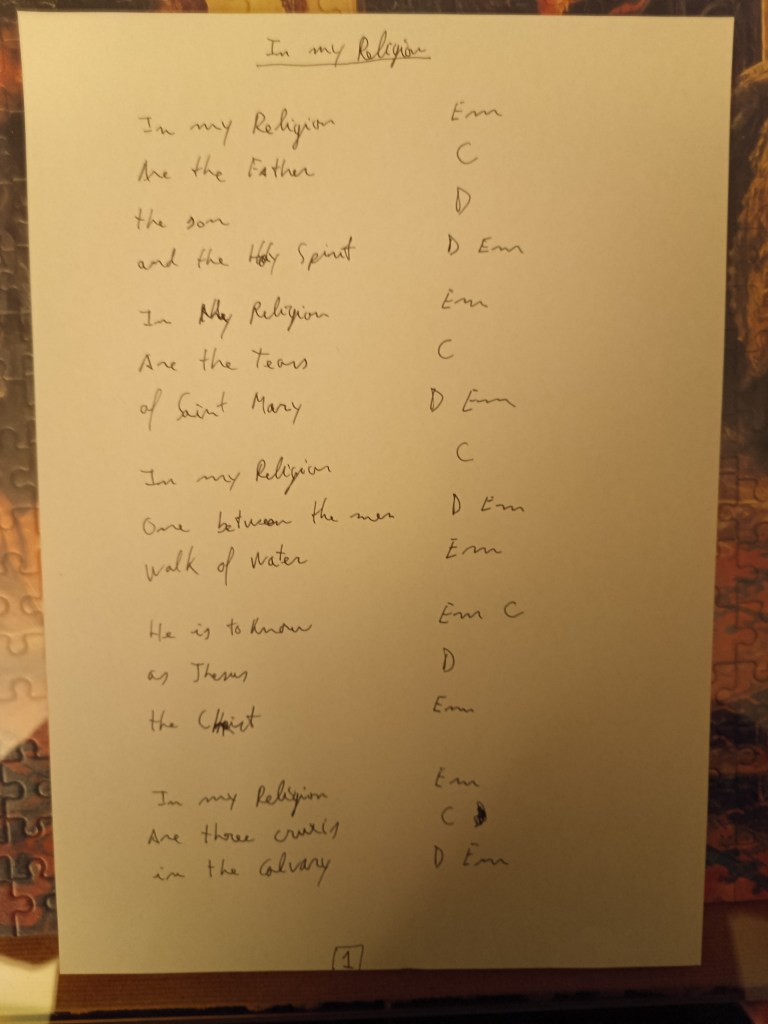 In my Religion
In my Religion Em
Are the Father C
the son D
and the Holy Spirit D Em
In My Religion Em
Are the Tears C
of Saint Mary D Em
In my Religion C
One between the men D Em
walk of water Em
He is to Know Em C
as Jhesus D
the CHrist Em
In my Religion Em
Are three crucis C
in the Calvary D Em
1